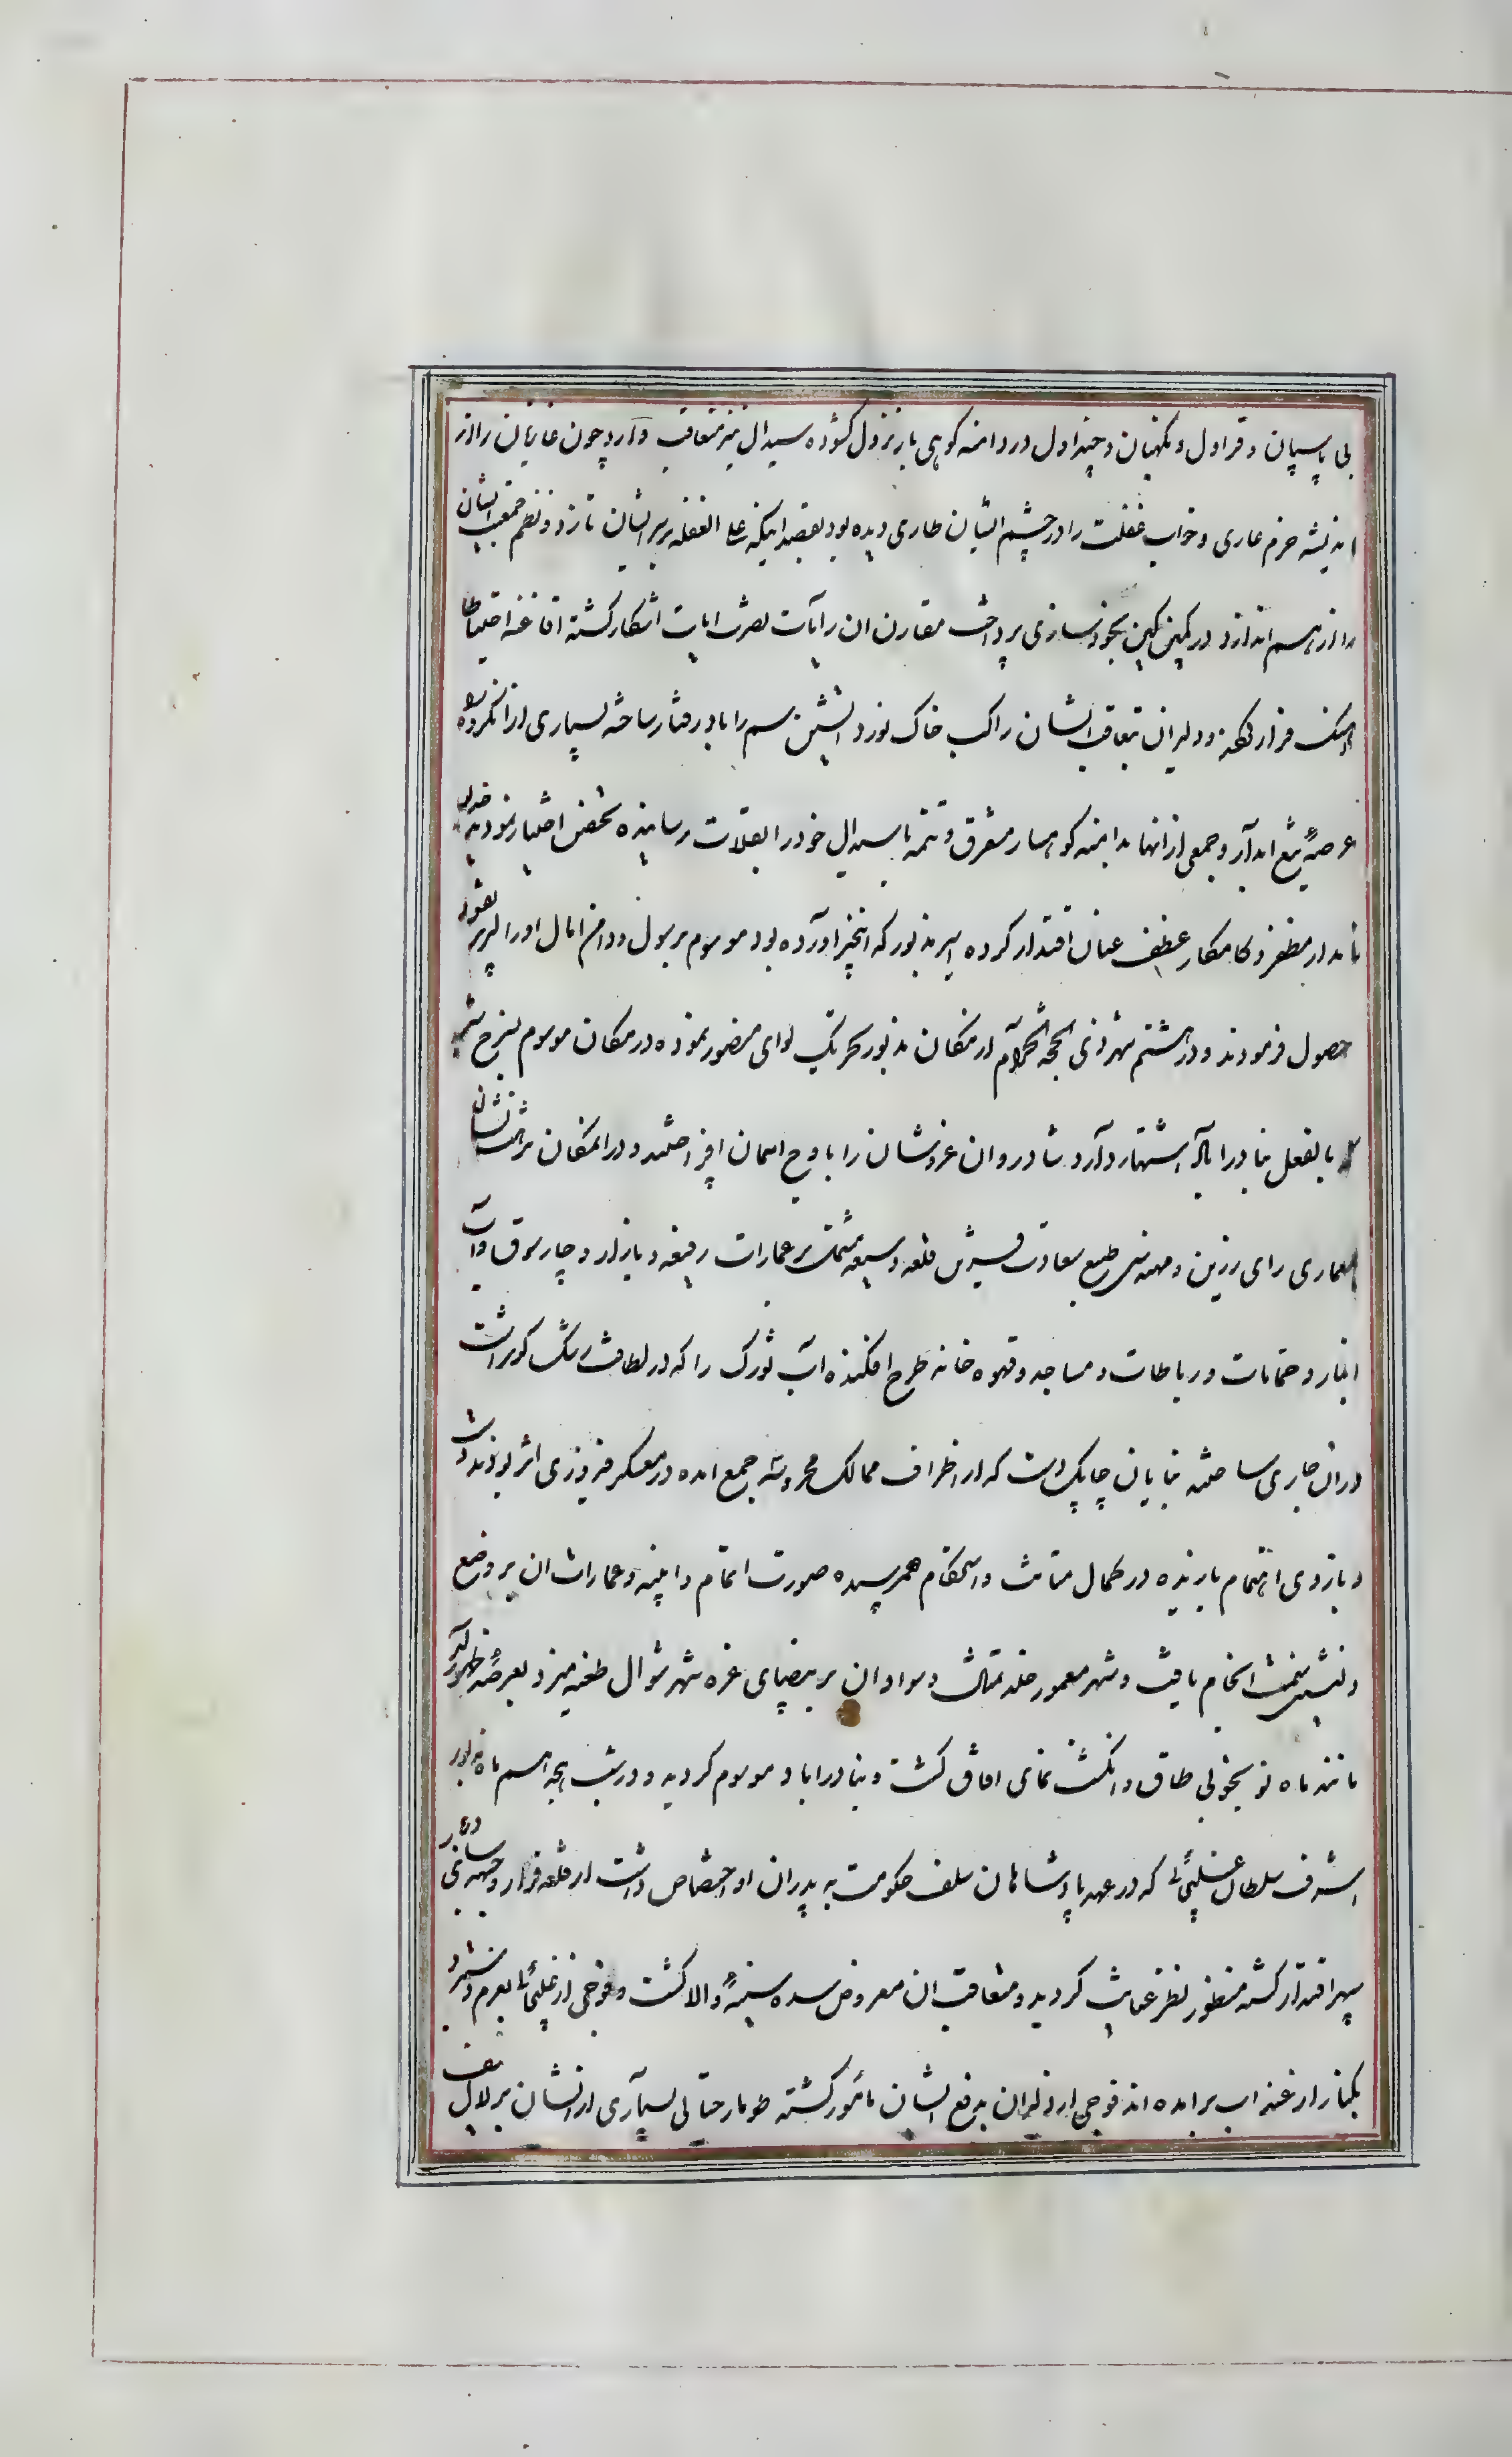 بی پاسبان و قراول و نکهبان و چنداول در دامنه کوهی بار نزول کشوده سیدال نیز متعاقب وارد چون غازیان را از
اندیشه حزم عاری و خواب غفلت را در چشم ایشان طاری دیده بود بقصد اینکه علی الغفله بر سر ایشان تازد و نظم جمعیت ایشان
را از هم اندازد در کمین کین بخودسازی پرداخت مقارن ان رایات نصرت ایات اشکار کشته افاغنه احتیاطا
اهنک فرار کرده و دلیران بتعاقب ایشان راکب خاک نورد اتشین سم را باد رفتار ساخته بسیاری از انکروه
عرصه تیغ اندار و جمعی از انها بدامنه کوهسار متفرق و تتمه با سیدال خود را بقلات رسانیده تحصن اختیار نمودند
نامدار مظفر و کامکار عطف عنان اقتدار کرده اسیر مزبور که انخبر اورده بود موسوم برسول و دامن امال او را لبریز نقود
حصول فرمودند و در هشتم شهر ذی الحجة الحرام از مکان مزبور تحریک لوای منصور نموده در مکان موسوم بسرخ شیر
که بالفعل بنادراباد اشتهار دارد شادروان عز و شان را باوج اسمان افراختند و در المکان
بمعماری رای رزین و مهندسی طبع سعادت قلعه وسیعه مشتمل بر عمارات رفیعه و بازار و چارسوق و اب
انبار و حمامات و رباطات و مساجد و قهوه خانه طرح افکنده اب ترنک را که در لطافت رشک کوثر است
دران جاری ساخته بنایان چابک دست که از اطراف ممالک محروسه جمع امده در معسکر فیروزی اثر بودند
و بازوی اهتمام یازیده در کمال متانت و استحکام همرسیده صورت اتمام و ابنیه و عمارات ان بر وضع
دلنشین سمت انجام یافت و شهر معمور خلد تمثال و سواد ان بر بیضای غره شهر شوال طعنه میزد بعرصه ظهور
مانند ماه نو بخوبی طاق و انکشت نمای افاق کشت و بنادراباد موسوم کردید و در شب هجدهم ماه مزبور
اشرف سلطان غلیجائی که در عهد پادشاهان سلف حکومت به پدران او اختصاص داشت از قلعه فرار و جبهه سای
سپهر اقتدار کشته منظور نظر عنایت کردید و متعاقب ان معروض سده سنیه والا کشت و فوجی از غلیجائی بعزم
بکنار ارغنداب برامده اند فوجی از دلیران بدفع ایشان مامور کشته طومار حیات بسیاری از ایشان